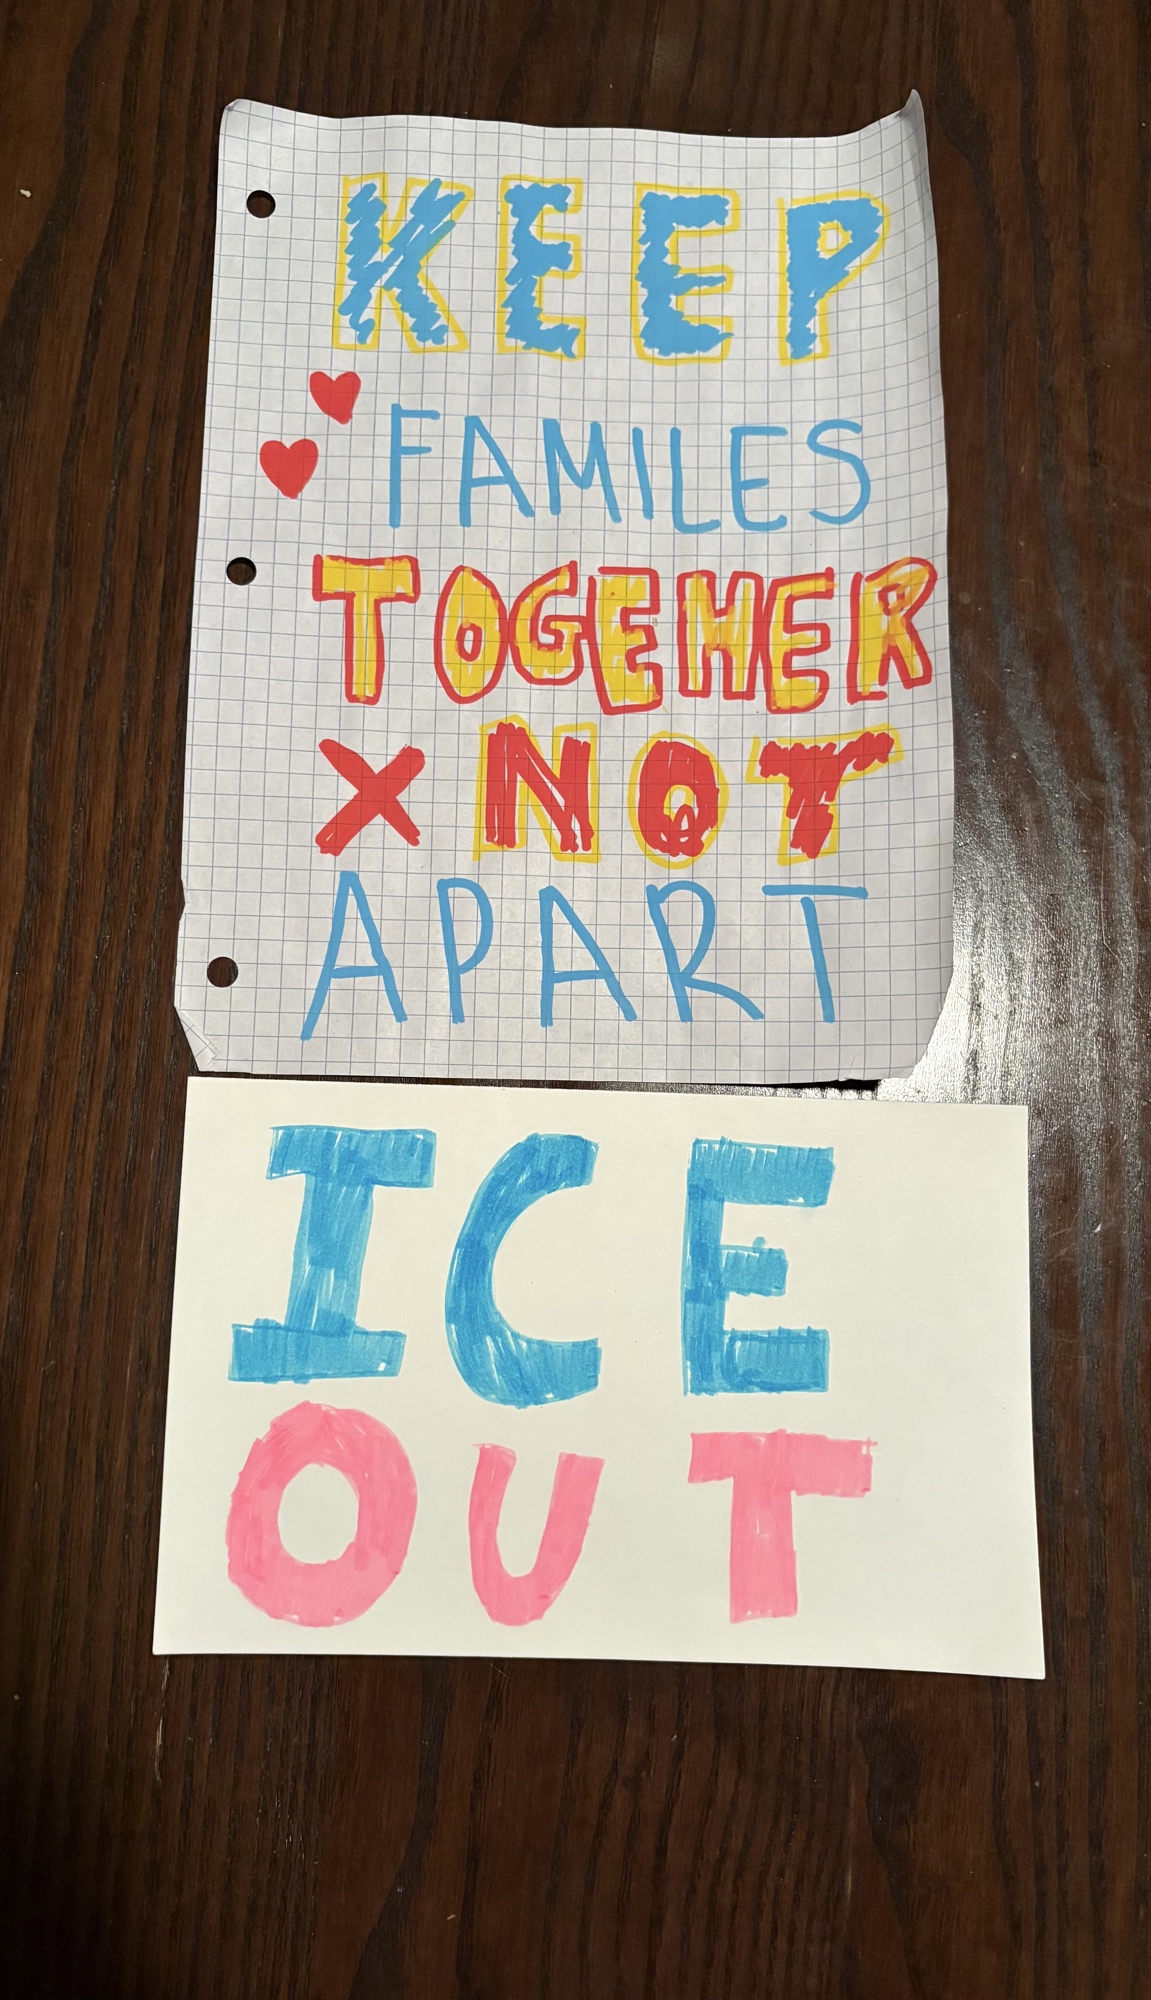 KEEP
FAMILES
TOGEHER
NOT
APART
ICE
OUT